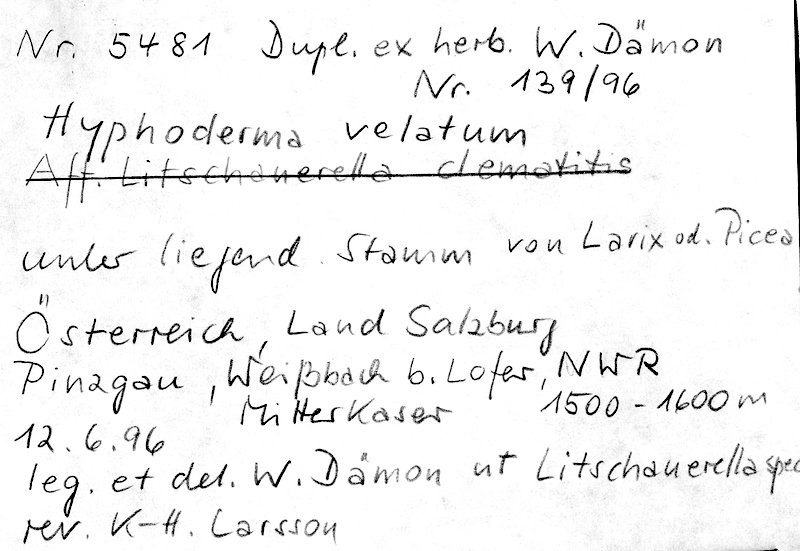 Nr. 5481 Dupl. ex herb. W. Dämon
Nr. 139/96
Hyphoderma velatum
Aff. Litschauerella clematitis
unter liegend. Stamm von Larix od. Picea
Österreich, Land Salzburg
Pinzgau, Weißbach b. Lofer, NWR
Mitterkaser 1500-1600m
12.6.96
leg. et det. W. Dämon ut Litschauerella spec
rev. K-H. Larsson